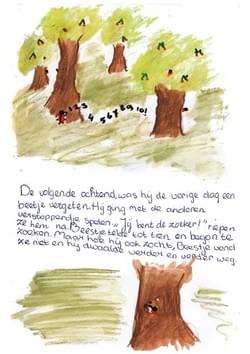 1 2 3
4 5 6 7 8 9 10!
De volgende ochtend, was hij de vorige dag een
beetje vergeten. Hij ging met de anderen
verstoppertje spelen. "Jij bent de zoeker!" riepen
ze hem na. Beestje telde tot tien en begon te
zoeken. Maar hoe hij ook zocht, Beestje vond
ze niet en hij dwaalde verder en verder weg.